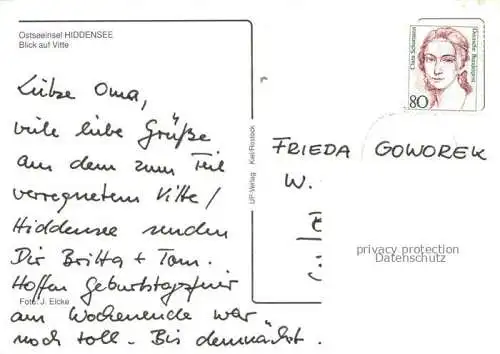 Ostseeinsel HIDDENSEE
Blick auf Vitte
Liebe Oma,
viele liebe Grüße
aus dem zum Teil
verregnetem Vitte /
Hiddensee senden
Dir Britta + Tom.
Hoffen Geburtstagsfeier
am Wochenende war
noch toll. Bis demnächst.
Foto: J. Eicke
UP-Verlag Kiel/Rostock
Clara Schumann
Deutsche Bundespost
80
FRIEDA GOWOREK
W.
privacy protection
Datenschutz